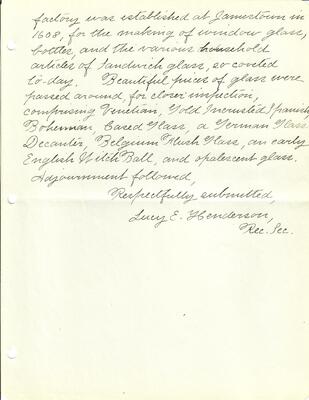 factory was established at Jamestown in
1608, for the making of window glass,
bottles, and the various household
articles of Sandwich glass, so coveted
to-day. Beautiful pieces of glass were
passed around, for closer inspection,
comprising Venetian, Gold Incrusted Spanish,
Bohemian, Cased Glass, a German Glass
Decanter, Belgium Flush Glass, an early
English Witch Ball, and opalescent glass.
Adjournment followed,
Respectfully submitted,
Lucy E. Henderson,
Rec. Sec.